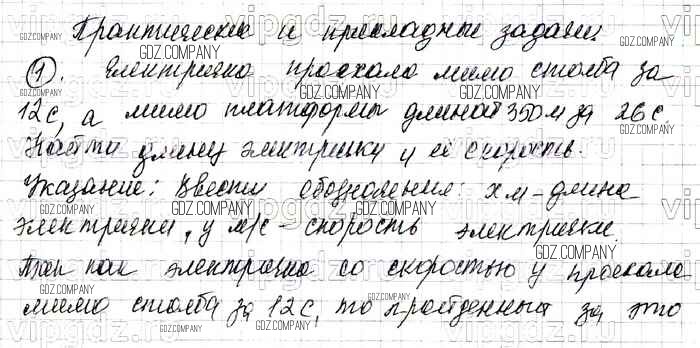 Практические и прикладные задачи.
① Электричка проехала мимо столба за
12 с, а мимо платформы длиной 350 м за 26 с.
Найти длину электрички и её скорость.
Указание: Ввести обозначение: x м – длина
электрички, y м/с – скорость электрички.
Так как электричка со скоростью y проехала
мимо столба за 12 с, то пройденный за это